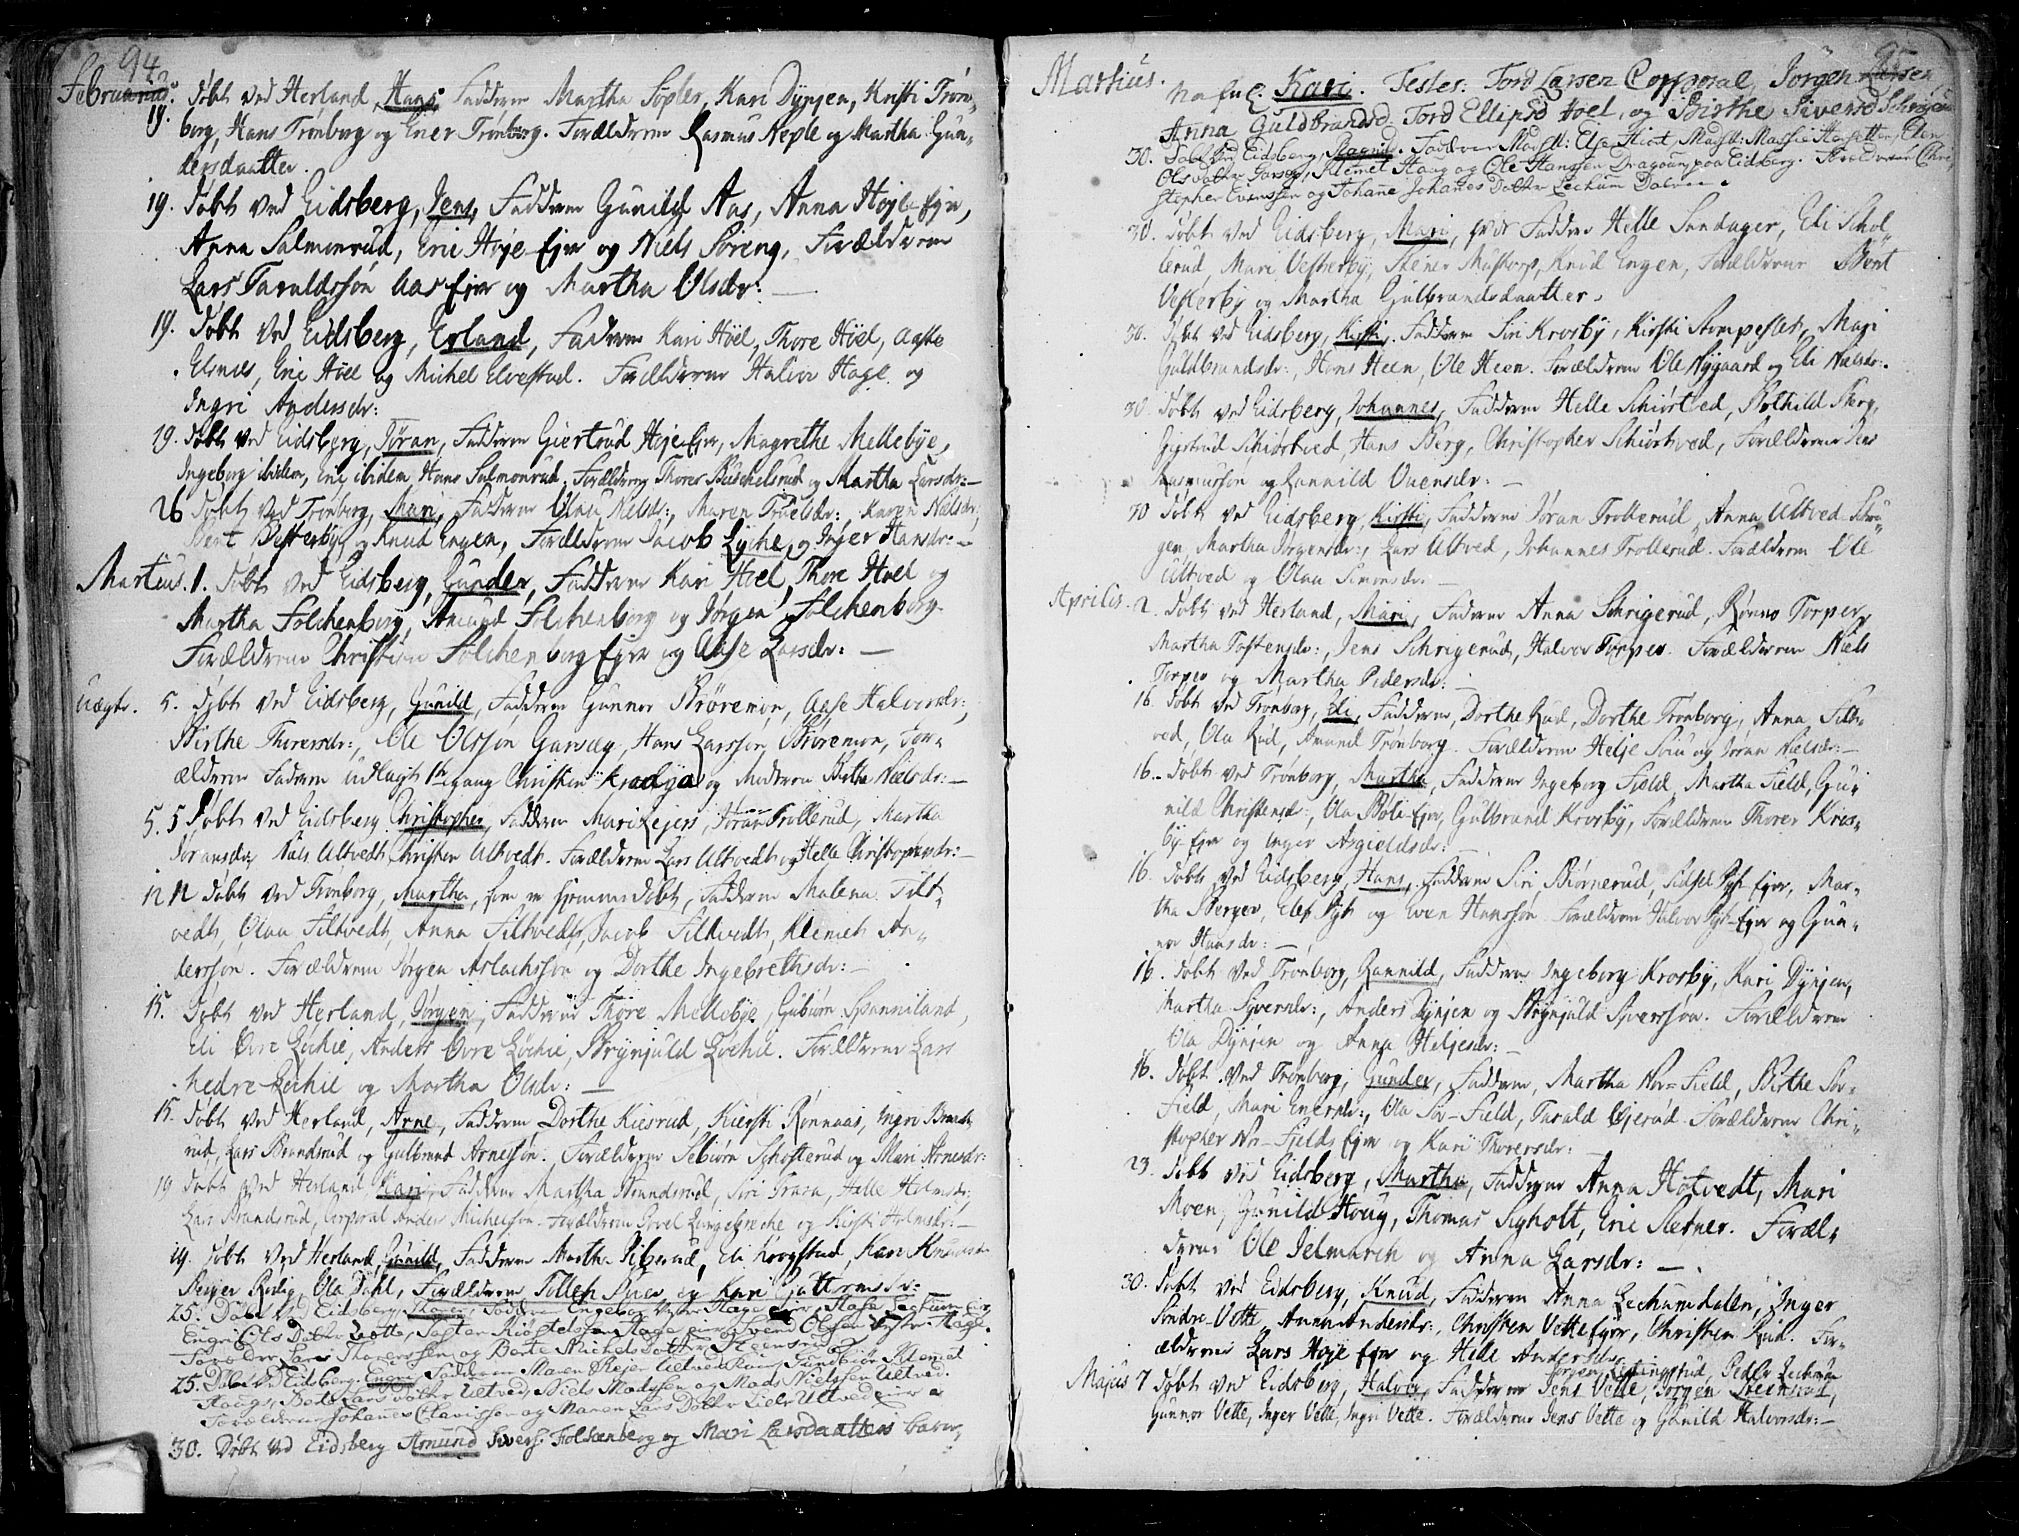 94
Februarius.
19. Døbt ved Herland, Hans, Faddrene Martha Søpler, Kari Dÿnjen, Kristi Trøn-
borg, Hans Trønborg og Ener Trønborg. Forældrene Rasmus Neple og Martha Gun-
dersdaatter.
19. Døbt ved Eidsberg, Jens, Faddrene Gunild Aas, Anna Høje Ejer,
Anna Salmonrud, Eric Høje Ejer og Niels Søreng, Forældrene
Lars Taraldssøn Aas Ejer og Martha Olsdr: —
19. Døbt ved Eidsberg, Erland, Faddrene Kari Höel, Thore Höel, Aaste
Elsnes, Eric Höel og Michel Elvestad. Forældrene Halvor Hage og
Ingri Andersdr:
19. Døbt ved Eidsberg, Jöran, Faddrene Giertrud Høje Ejer, Magrethe Mellebÿe,
Ingeborg ibidem, Eric ibidem, Hans Salmonrud, Forældrene Thorer Buschelsrud og Martha Larsdr: —
26 Døbt ved Trønborg, Mari, Faddrene Olau Nelsdr:, Maren Truelsdr:, Karen Nielsdr:,
Bent Vesterbÿ og Knud Engen, Forældrene Jacob Lÿche og Inger Hansdr: —
Martius. 1. Døbt ved Eidsberg, Gunder, Faddrene Kari Höel, Thore Höel og
Martha Folchenborg, Amund Folchenborg og Jørgen Folchenborg
Forældrene Christian Folchenborg Ejer og Aase Larsdr: —
Uægte. 5. Døbt ved Eidsberg, Gunild, Faddrene Gunnor Brøremon, Aase Halvorsdr:,
Birthe Thoresdr:, Ole Olssøn Gansæg, Hans Larssøn Brøremon, For-
ældrene Faderen udlagt 1te gang Christen Krosbÿe og Moderen Berthe Nielsdr: —
5. 5 Døbt ved Eidsberg Christopher, Faddrene Mari Lejers, Jöran Trollerud, Martha
Joransdr, Niels Ultvedt, Christen Ultvedt. Forældrene Lars Ultvedt og Helle Christophersdr: —
12 12 Døbt ved Trønborg, Martha, som er hjemmedøbt, Faddrene Malena Filt-
vedt, Olau Filtvedt, Anna Filtvedt, Jacob Filtvedt, Klemet An-
derssøn. Forældrene Jörgen Aslachssøn og Dorthe Ingebrethsdr: —
15. Døbt ved Herland, Jörgen, Faddrene Thore Mellebÿe, Gubiør Spanniland,
Eli Øvre Løchie, Anders Øvre Løchie, Brÿnjuld Løchie. Forældrene Lars
Nedre Løchie og Martha Olsdr: —
15. Døbt ved Herland, Arne, Faddrene Dorthe Kiesrud, Kiersti Rønnaas, Ingri Brand-
rud, Lars Brandsrud og Gulbrand Arnessøn. Forældrene Sebiørn Schofterud og Mari Arnesdr:
19 Døbt ved Herland Kari, Faddrene Martha Brandsrud, Siri Grasa, Helle Holmsdr,
Lars Brandsrud, Corporal Ander Michelssøn. Forældrene Povel Lingebreche og Kirsti Holmsdr: —
19. Døbt ved Herland, Gunild, Faddrene Martha Riberud, Eli Kroogstad, Kari Knudsdr
Reijer Redig, Ola Dahl, Forældrene Tollef Buer og Kari Guttormsdr:
25. Døbt ved Eidsberg, Thorer, Faddrene Engebor Vestre Hage ejer, Aase Lechum ejer
Engri Ols Datter Lotte, Peter Kiøstelsen Hage ejer, Svend Olsen Vestre Hage.
Foreldre Lars Thoressen og Berte Michels Datter Steensrud
25. Døbt ved Eidsberg. Engri. Faddrene Maren Rejer Ultved Kari Gundbiør Klemet
Haug, Berte Lars Datter Ultved, Niels Madssen og Mads Nielssen Ultved.
Foreldrene Johanes Clavissen og Maren Lars Datter Lisle Ultved ejere
30. Døbt ved Eidsberg Amund Sivers. Folkenborg og Mari Larsdaatters barn,
95
Martius.
Nafnl. Kari. Testes. Tord Larsen Corporal, Jørgen Larsen,
Anna Guldbrandsd. Tord Ellipsd Hoel, og Birthe Siversd Schrigerud
30. Døbt ved Eidsberg, Magnild. Faddrene Madsll: Else Hiort, Madsll: Massie Hofsetter, Ellen
Olsdatter Forseg, Klemet Haug og Ole Hanssen Dragoun paa Eidberg. Foreldrene Chri-
stopher Evenssen og Johane Johanes Datter Lechum Dalen.
30. Døbt ved Eidsberg, Mari, hvor Faddere Helle Sandager, Eli Schol-
lerud, Mari Vesterbÿ, Stener Mustorp, Knud Engen, Forældrene Bent
Vesterbÿ og Martha Gulbrandsdaatter.
30. Døbt ved Eidsberg, Kirsti, Faddrene Siri Krosbÿ, Kirsti Stompeslet, Mari
Guldbrandsdr:, Hans Heen, Ole Heen. Forældrene Ole Nÿgaard og Eli Nielsdr:.
30 Døbt ved Eidsberg, Johannes, Faddrene Helle Schiørtved, Bothild Berg,
Giertrud Schiørtved, Hans Berg, Christopher Schiørtved, Forældrene Jens
Rasmussøn og Rannild Ovensdr: —
30 Døbt ved Eidsberg Kirsti, Faddrene Jöran Trollerud, Anna Ultved Schou-
gen, Martha Jörgensdr:, Lars Ultved, Johannes Trollerud. Forældrene Ole
Ultved og Olau Simonsdr: —
Aprilis. 2. Døbt ved Herland, Mari, Faddrene Anna Schrigerud, Rønno Torper,
Martha Tostensdr:, Jens Schrigerud, Halvor Torper. Forældrene Niels
Torper og Martha Pedersdr: —
16. Døbt ved Trønborg, Eli, Faddrene, Dorthe Rud, Dorthe Trønborg, Anna Filt-
ved, Ola Rud, Amund Trønborg. Forældrene Helje Sou og Jöran Nielsdr: —
16. Døbt ved Trønborg, Martha, Faddrene Ingeborg Field, Martha Field, Gu-
nild Christensdr:, Ola Bøla-Ejer, Gulbrand Krosbÿ, Forældrene Thorer Kros-
bÿ Ejer og Inger Asgieldsdr: —
16. Døbt ved Eidsberg, Hans, Faddrene Siri Biørnerud, Sidsel Pÿt Ejer, Mar-
tha Berger, Elef Pÿt og Even Hanssøn. Forældrene Halvor Pÿt-Ejer og Gun-
nor Hansdr: —
16. Døbt ved Trønborg, Rannild, Faddrene Ingeborg Krosbÿ, Kari Dÿnjen,
Martha Siversdr:, Anders Dÿnjen og Brÿnjuld Siverssøn. Forældrene
Ola Dÿnjen og Anna Heljesdr: —
16. Døbt ved Trønborg, Gunder, Faddrene, Martha Nor-Field, Birthe Sør-
Field, Mari Enersdr:, Ola Sør-Field, Tarald Gjerud. Forældrene Chri-
stopher Nor-Fields Ejer og Kari Thoresdr: —
23. Døbt ved Eidsberg, Martha, Faddrene Anna Hotvedt, Mari
Moen, Gunild Houg, Thomas Sigholt, Eric Sletner. Foræl-
drene Ole Jelmarch og Anna Larsdr: —
30. Døbt ved Eidsberg, Knud, Faddrene Anna Lechumdalen, Inger
Søndre-Vette, Anna Andersdr:, Christen Vette Ejer, Christen Rud. For-
ældrene Lars Høje Ejer og Helle Andersdr:
Jørgen Kistingstad, Peder Lechum
Majus 7 Døbt ved Eidsberg, Halvor, Faddrene Jens Vette, Jørgen Steensrud,
Gunnor Vette, Inger Vette, Ingri Vette. Forældrene Jens Vette og Gunild Halvorsdr: —